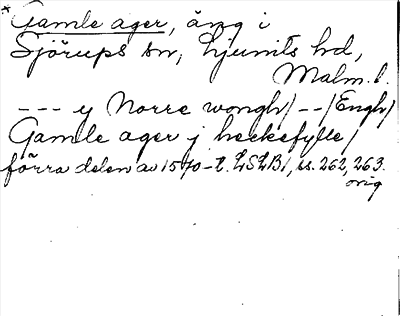 * Gamle ager, äng i
Sjörups sn, Ljunits hd,
Malm. l.
--- y Norre wongh/--/Engh/
Gamle ager j heckefylle/
förra delen av 1570-t. LSLB1, ss. 262, 263.
orig